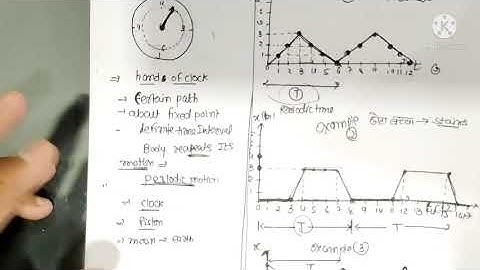 ⇒ hands of clock
→ Certain path
→ about fixed point
- definite time Interval
Body reapeats Its
motion ⇒
periodic motion
clock
Piston
moon → earth
KINEMASTER
3
2
1
0 1 2 3 4 5 6 7 8 9 10 11 12
T
Periodic time
x(m)
example → Stairs
②
3
2
1
0 1 2 3 4 5 6 7 8
T
T
example ③
x